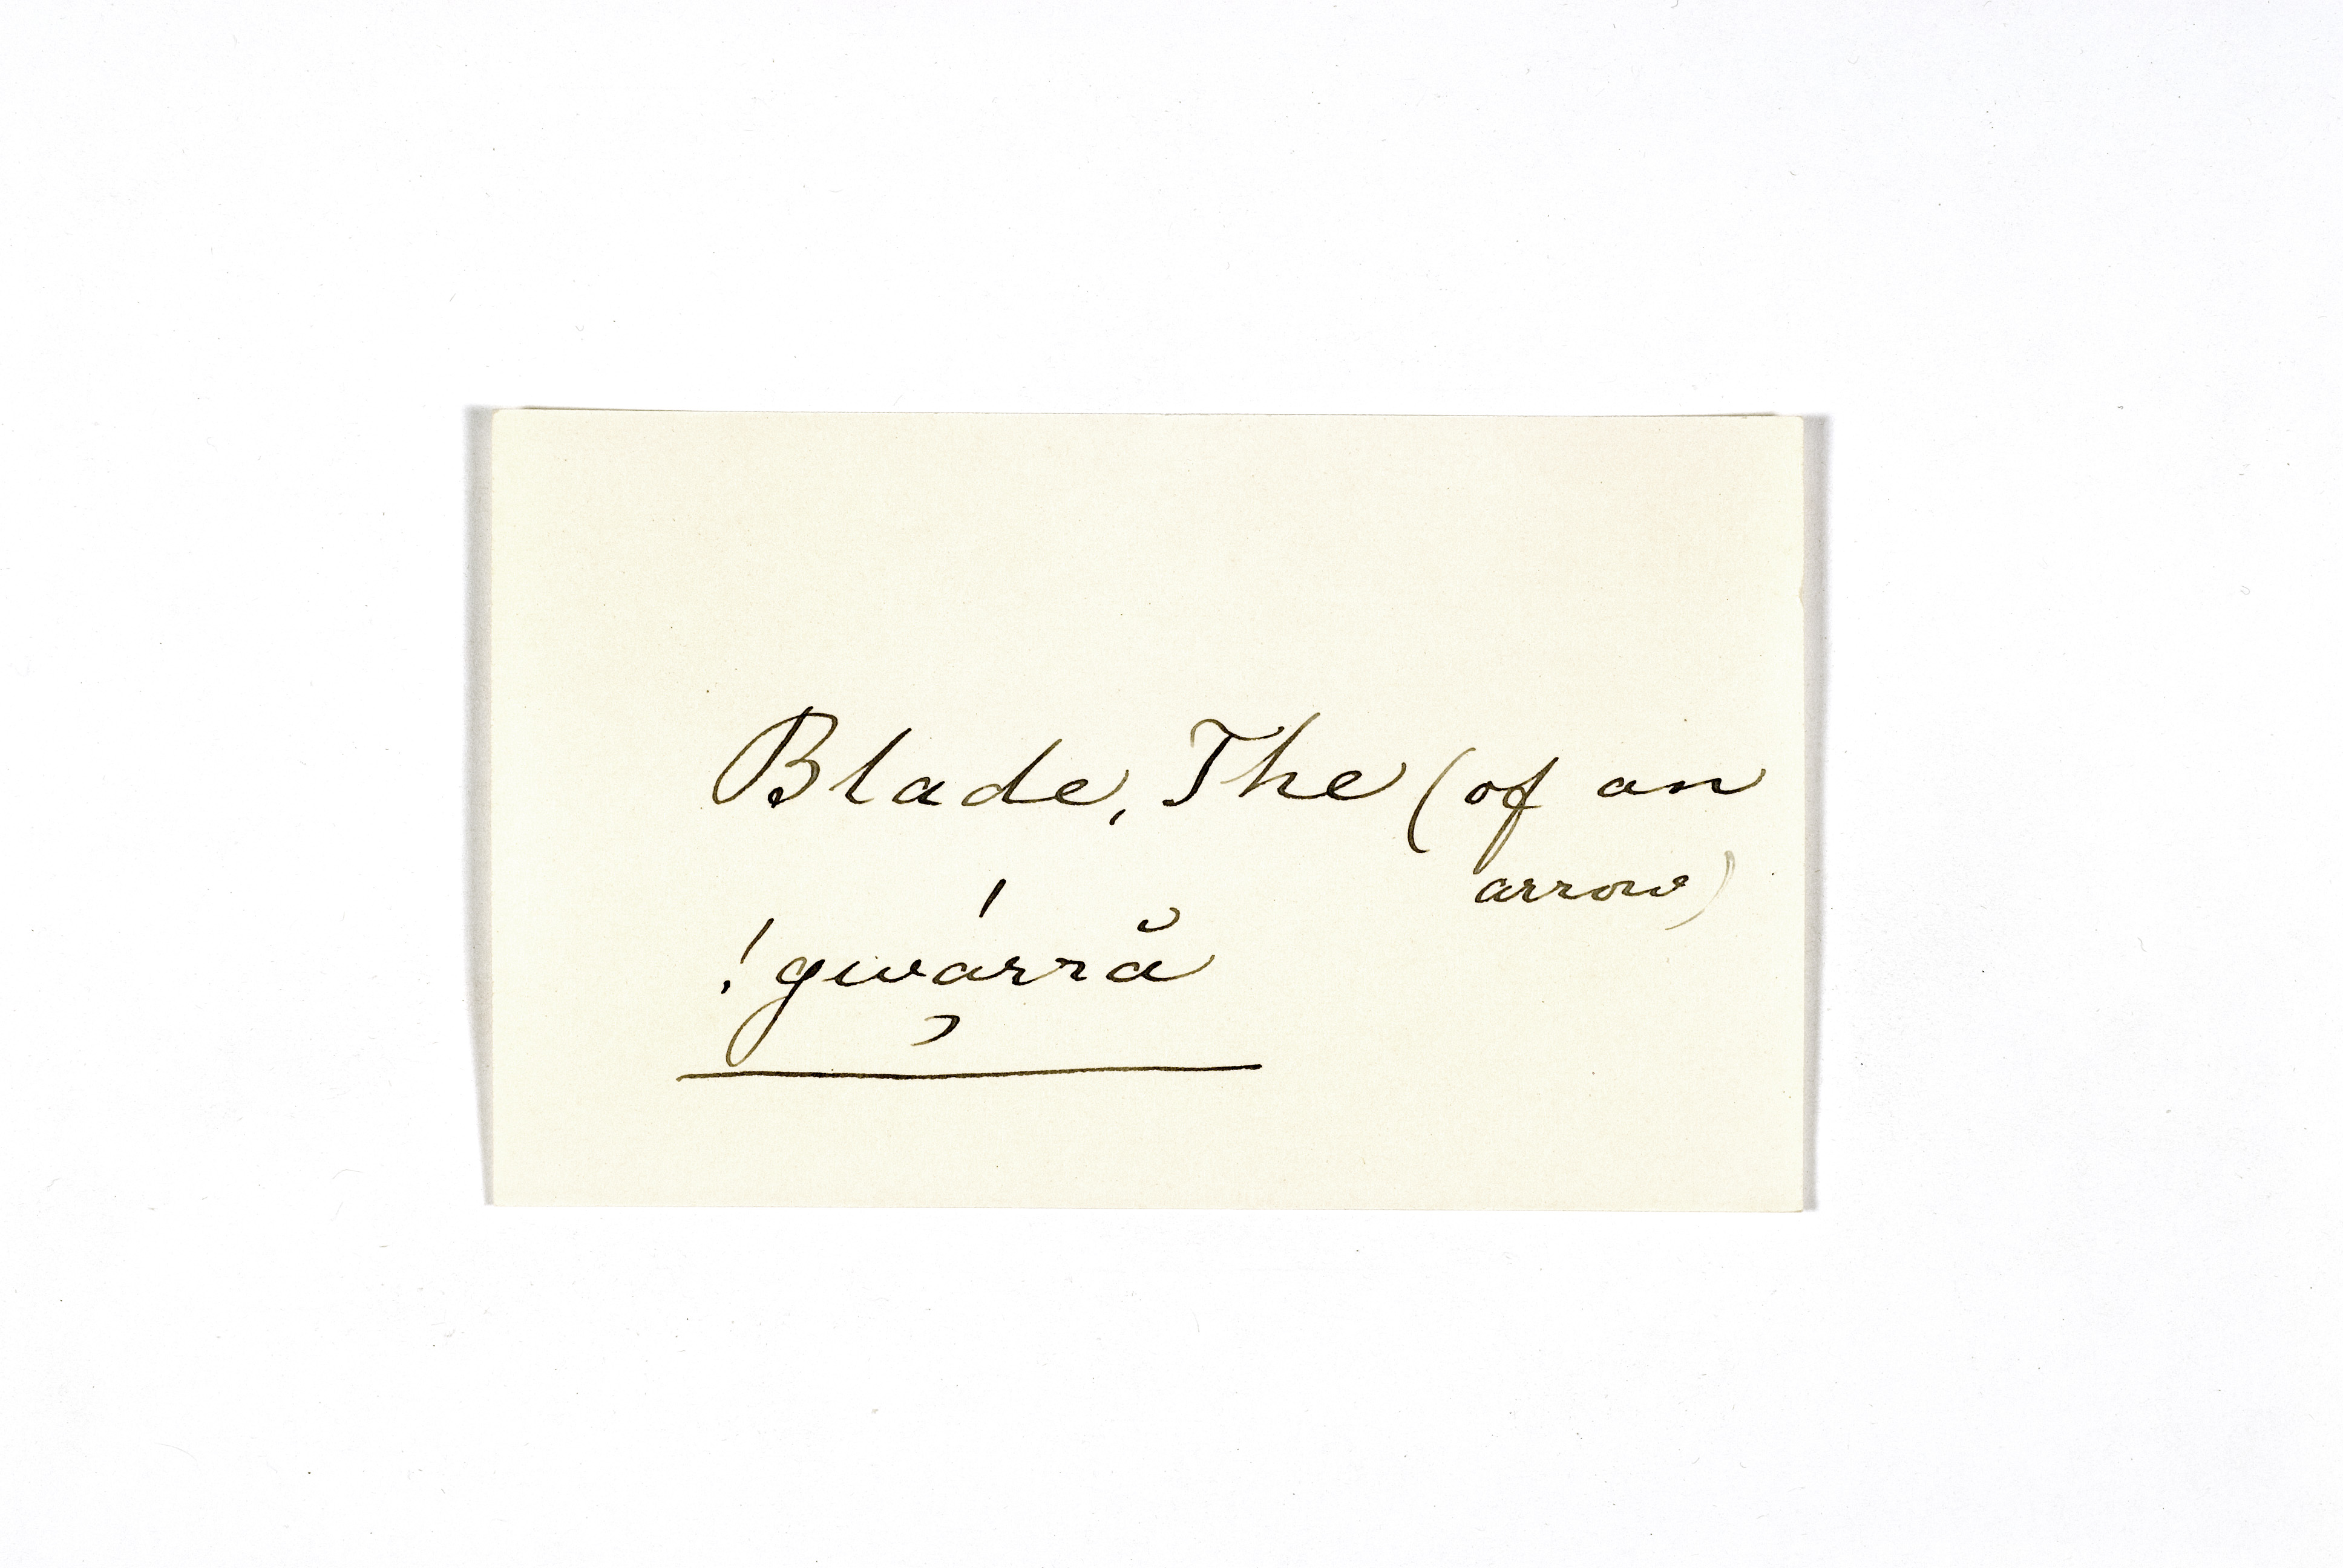 Blade, The (of an
arrow)
!gwá̦rră